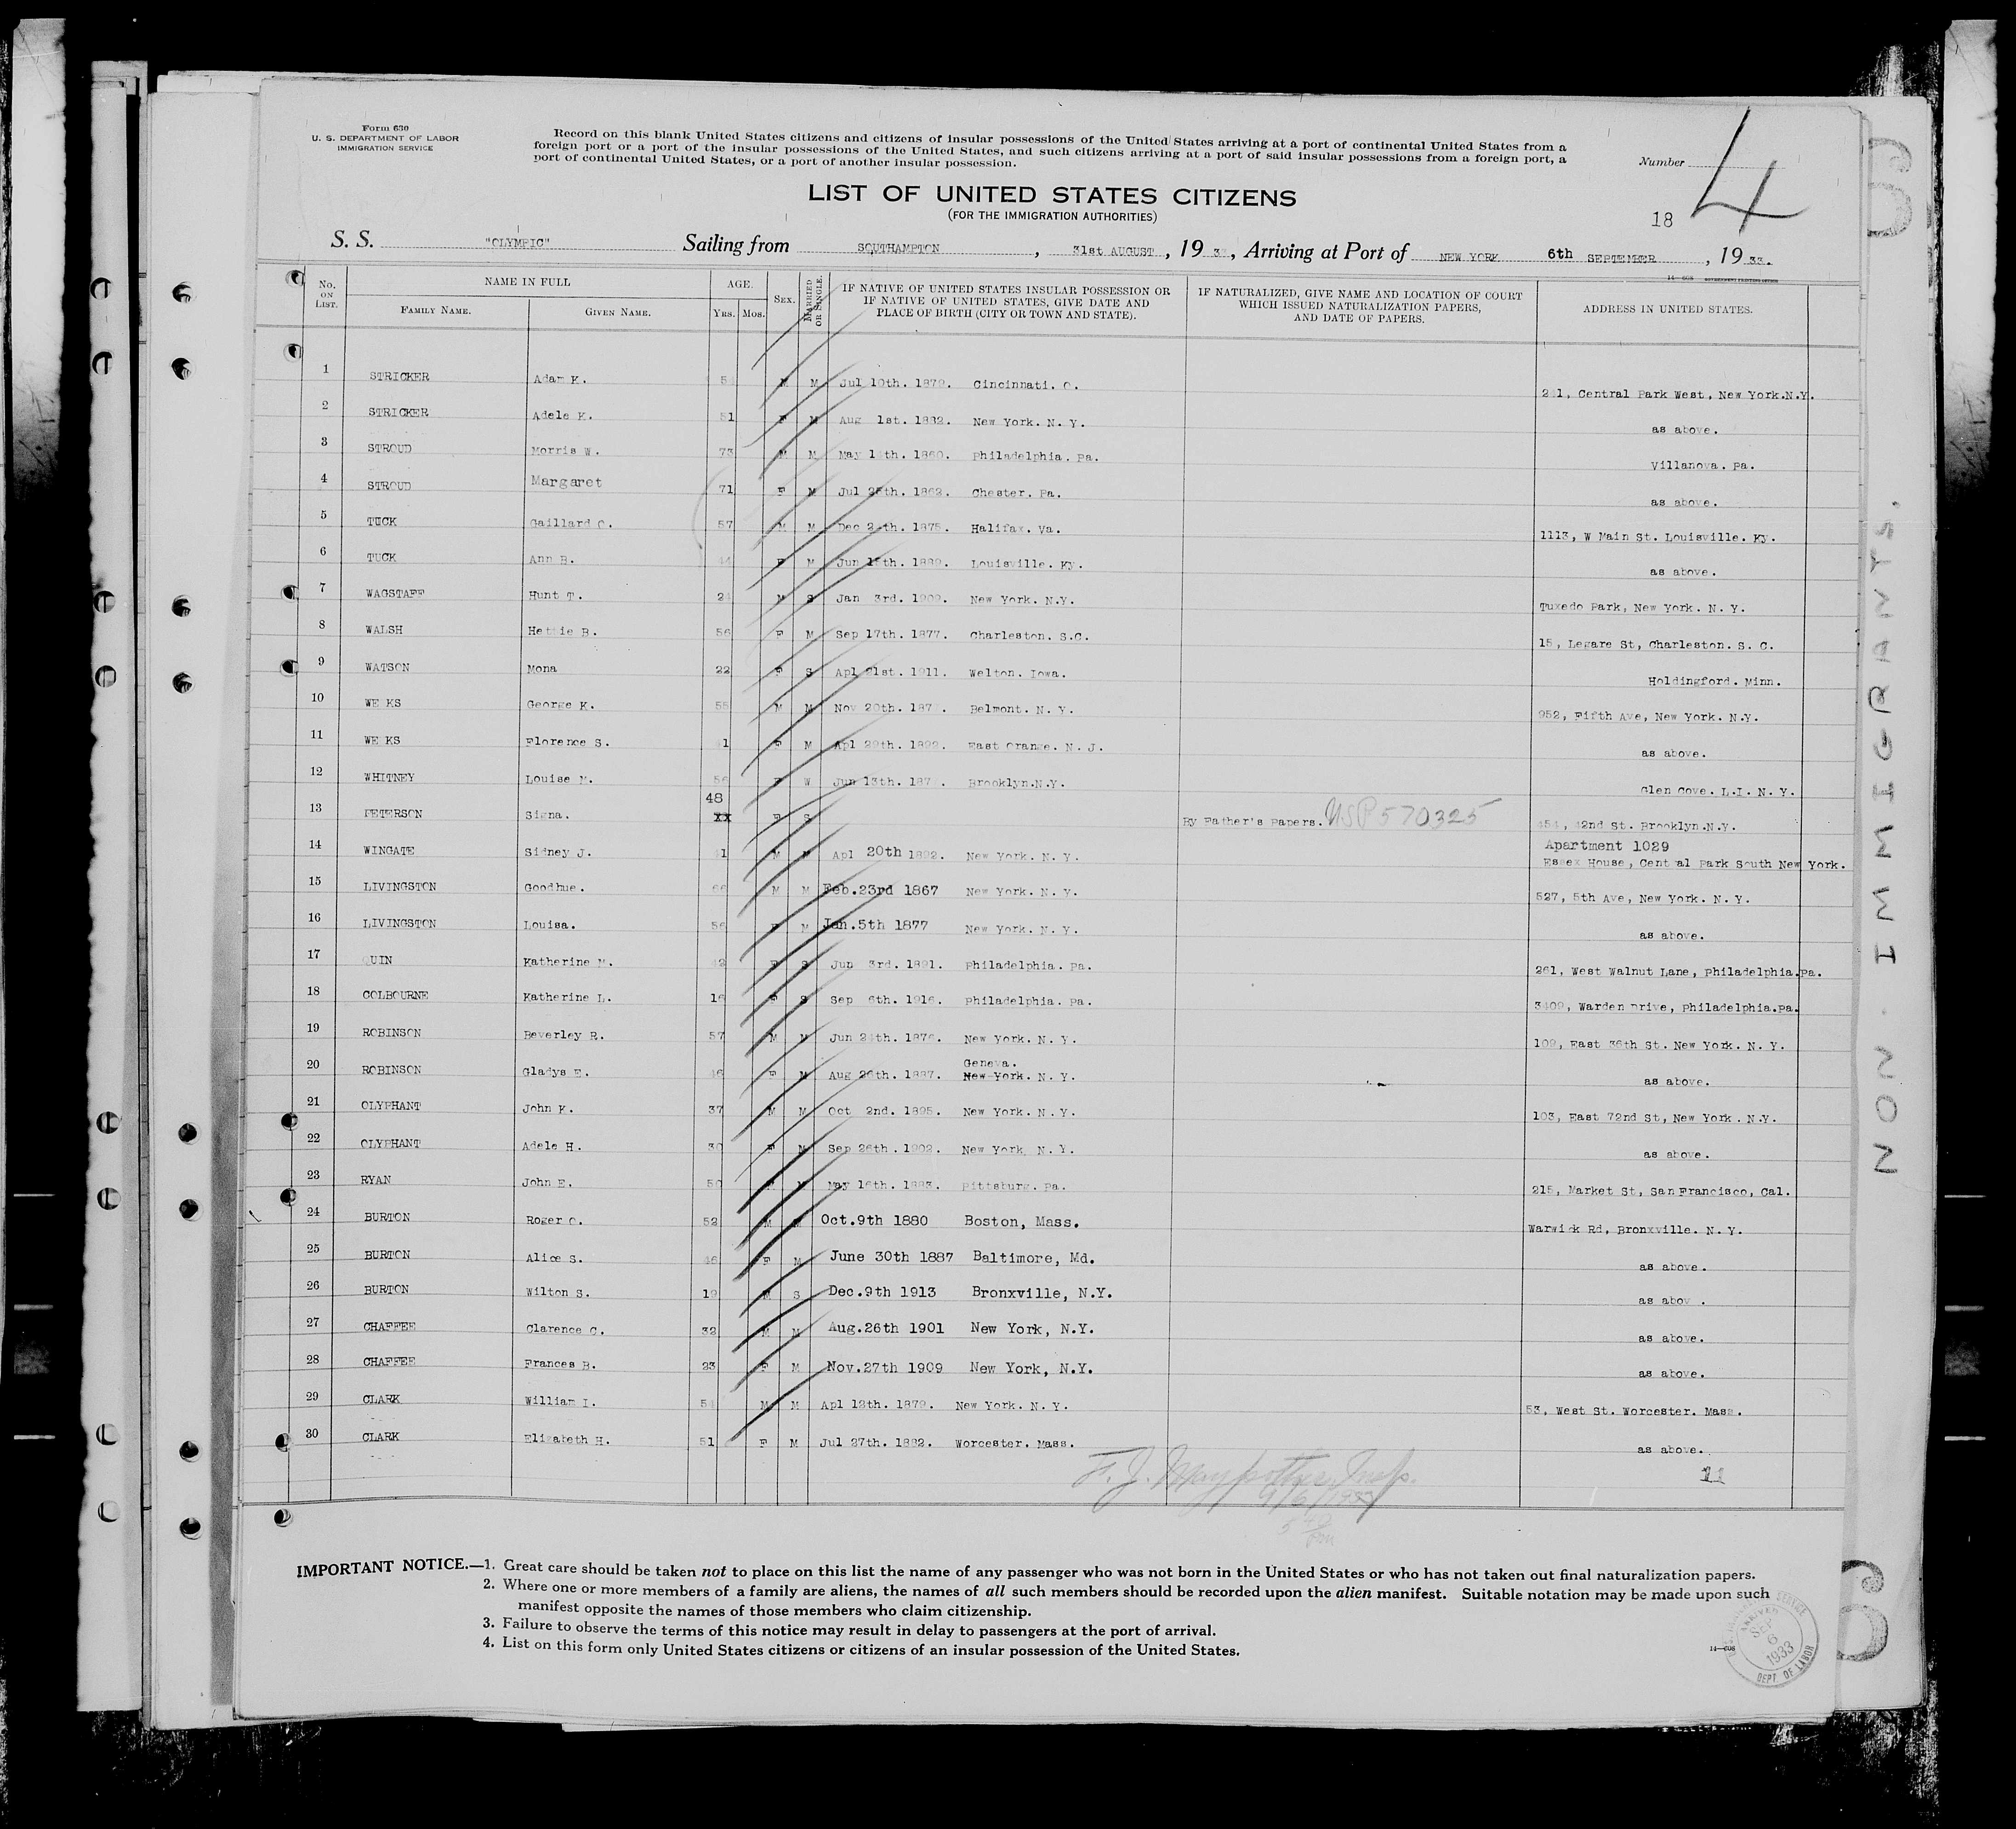 Form 630
U. S. DEPARTMENT OF LABOR
IMMIGRATION SERVICE
Record on this blank United States citizens and citizens of insular possessions of the United States arriving at a port of continental United States from a
foreign port or a port of the insular possessions of the United States, and such citizens arriving at a port of said insular possessions from a foreign port, a
port of continental United States, or a port of another insular possession.
Number 4
LIST OF UNITED STATES CITIZENS
(FOR THE IMMIGRATION AUTHORITIES)
18
S. S. "OLYMPIC" Sailing from SOUTHAMPTON, 31st AUGUST, 1933, Arriving at Port of NEW YORK 6th SEPTEMBER, 1933.
No. ON LIST. NAME IN FULL FAMILY NAME. GIVEN NAME. AGE. YRS. MOS. SEX. MARRIED OR SINGLE. IF NATIVE OF UNITED STATES INSULAR POSSESSION OR IF NATIVE OF UNITED STATES, GIVE DATE AND PLACE OF BIRTH (CITY OR TOWN AND STATE). IF NATURALIZED, GIVE NAME AND LOCATION OF COURT WHICH ISSUED NATURALIZATION PAPERS, AND DATE OF PAPERS. ADDRESS IN UNITED STATES.
1 STRICKER Adam K. M M Jul 10th. 1879. Cincinnati. O. Central Park West, New York.N.Y.
2 STRICKER Adele K. 51 F M Aug 1st. 1882. New York. N. Y. as above.
3 STROUD Morris W. 73 M M May 1860. Philadelphia. Pa. Villanova. Pa.
4 STROUD Margaret 71 F M Jul 1862. Chester. Pa. as above.
5 TUCK Gaillard C. 57 M M Dec 1875. Halifax. Va. 1113, W Main St. Louisville. Ky.
6 TUCK Ann B. 44 F M Jun 1889. Louisville. Ky. as above.
7 WAGSTAFF Hunt T. 24 M S Jan 3rd. 1909. New York. N.Y. Tuxedo Park, New York. N. Y.
8 WALSH Hettie B. 56 F M Sep 17th. 1877. Charleston. S.C. 15, Legare St, Charleston. S. C.
9 WATSON Mona 22 F S Apl 21st. 1911. Welton. Iowa. Holdingford. Minn.
10 WE KS George K. 55 M M Nov 20th. 187 . Belmont. N. Y. 952, Fifth Ave, New York. N.Y.
11 WE KS Florence S. 41 F M Apl 29th. 1892. East Orange. N. J. as above.
12 WHITNEY Louise M. 56 F W Jun 13th. 187 . Brooklyn.N.Y. Glen Cove. L.I. N. Y.
13 PETERSON Signa. 48 xx F S By Father's Papers. USP 570325 454, 42nd St. Brooklyn.N.Y.
14 WINGATE Sidney J. 41 M M Apl 20th 1892. New York. N. Y. Apartment 1029
Essex House, Central Park South New York.
15 LIVINGSTON Goodhue. 66 M M Feb.23rd 1867 New York. N. Y. 527, 5th Ave, New York. N. Y.
16 LIVINGSTON Louisa. 56 F M Jan.5th 1877 New York. N. Y. as above.
17 QUIN Katherine M. 42 F S Jun 3rd. 1891. Philadelphia. Pa. 261, West Walnut Lane, Philadelphia.Pa.
18 COLBOURNE Katherine L. 16 F S Sep 6th. 1916. Philadelphia. Pa. 3409, Warden Drive, Philadelphia.Pa.
19 ROBINSON Beverley R. 57 M M Jun 24th. 1876. New York. N. Y. 109, East 36th St. New York. N. Y.
20 ROBINSON Gladys E. 46 F M Aug 26th. 1887. Geneva. New York. N. Y. as above.
21 OLYPHANT John K. 37 M M Oct 2nd. 1895. New York. N. Y. 103, East 72nd St, New York. N.Y.
22 OLYPHANT Adele H. 30 F M Sep 26th. 1902. New York N. Y. as above.
23 RYAN John E. 50 M May 16th. 1883. Pittsburg. Pa. 215, Market St, San Francisco, Cal.
24 BURTON Roger C. 52 M M Oct.9th 1880 Boston, Mass. Warwick Rd, Bronxville. N. Y.
25 BURTON Alice S. 46 F M June 30th 1887 Baltimore, Md. as above.
26 BURTON Wilton S. 19 M S Dec.9th 1913 Bronxville, N.Y. as abov .
27 CHAFFEE Clarence C. 32 M M Aug.26th 1901 New York, N.Y. as above.
28 CHAFFEE Frances B. 23 F M Nov.27th 1909 New York, N.Y. as above.
29 CLARK William I. 54 M M Apl 12th. 1879. New York. N. Y. 53, West St. Worcester. Mass.
30 CLARK Elizabeth H. 51 F M Jul 27th. 1882. Worcester. Mass. as above.
11
F. J. Maypother Insp.
9/6/1933
NON IMMIGRANTS.
IMPORTANT NOTICE.—1. Great care should be taken not to place on this list the name of any passenger who was not born in the United States or who has not taken out final naturalization papers.
2. Where one or more members of a family are aliens, the names of all such members should be recorded upon the alien manifest. Suitable notation may be made upon such
manifest opposite the names of those members who claim citizenship.
3. Failure to observe the terms of this notice may result in delay to passengers at the port of arrival.
4. List on this form only United States citizens or citizens of an insular possession of the United States.
14—608
ARRIVED
SEP 6 1933
DEPT OF LABOR